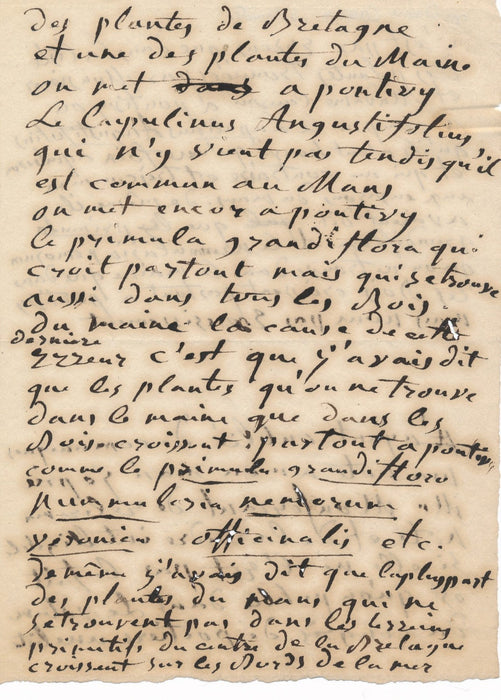 des plantes de Bretagne
et une des plantes du Maine
on met dans a pontivy
Le Lupulinus Angustifolius
qui n'y vient pas tendis qu'il
est commun au Mans
on met encor a pontivy
le primula grandiflora qui
croit partout mais qui se trouve
aussi dans tous les Bois
du maine la cause de cette
derniere
erreur c'est que j'avais dit
que les plantes qu'on ne trouve
dans le maine que dans les
Bois croissent partout a pontivy
comme le primula grandiflora
nummularia nemorum
veronica officinalis etc.
de même j'avais dit que la pluspart
des plantes du mans qui ne
se trouvent pas dans les terreins
primitifs du centre de la Bretagne
croissent sur les Bords de la mer